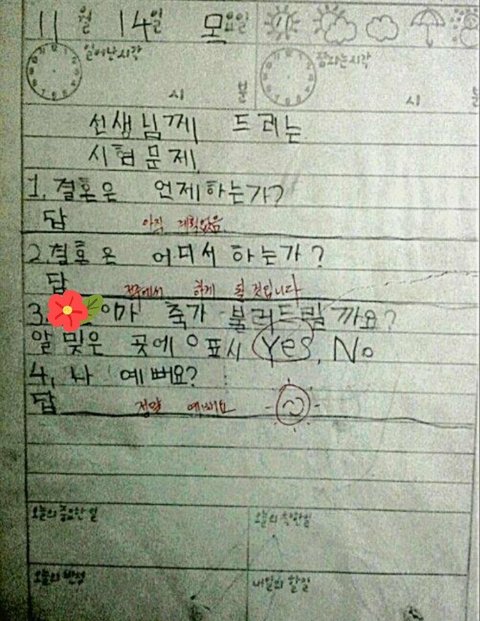 11월 14일 모요일
일어난시각 꿈꾸는시각
시 분 시 분
선생님께 드리는
시험문제.
1. 결혼은 언제하는가?
답 아직 계획없음.
2. 결혼은 어디서 하는가?
답 전주에서 하게 될 것입니다
3. 이가 축가 불러드릴까요?
알맞은 곳에 ㅇ표시 Yes, No
4. 나 예뻐요?
답 정말 예뻐요
오늘의 중요한 일 오늘의 착한일
오늘의 반성 내일의 할일